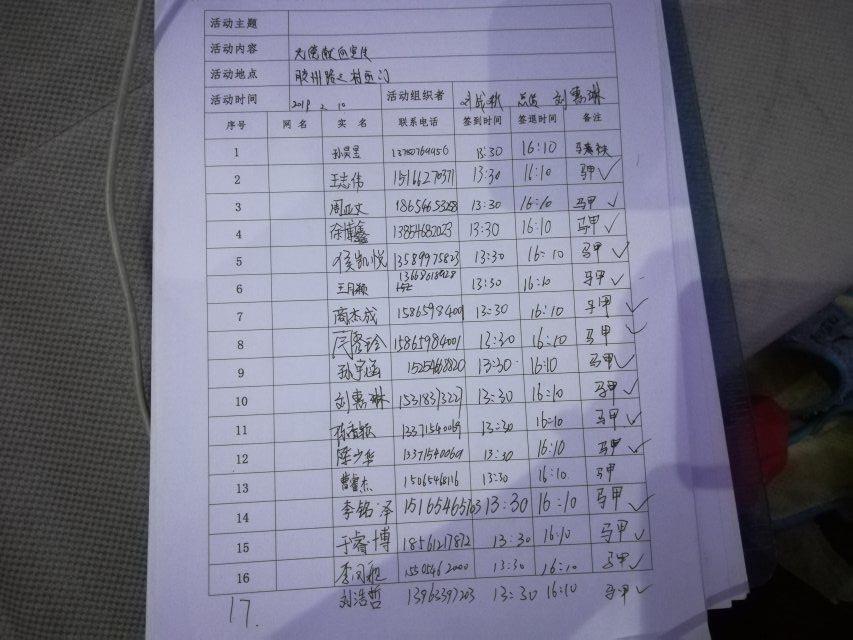 活动主题
活动内容 无偿献血宣传
活动地点 胶州路 村西门
活动时间 2019 2 10 活动组织者 刘成歌 刘惠琳
序号 网名 实名 联系电话 签到时间 签退时间 备注
1 孙昊昱 13:30 16:10
2 王志伟 15166270371 13:30 16:10 马甲 ✓
3 周亚文 18654653288 13:30 16:10 马甲 ✓
4 徐博鑫 13854682023 13:30 16:10 马甲 ✓
5 侯凯悦 13589975823 13:30 16:10 马甲 ✓
6 王月颖 13:30 16:10 马甲 ✓
7 商杰成 1586598400 13:30 16:10 马甲 ✓
8 15865984001 13:30 16:10 马甲 ✓
9 孙宇涵 15254668820 13:30 16:10 马甲 ✓
10 刘惠琳 15318373227 13:30 16:10 马甲 ✓
11 13371540069 13:30 16:10 马甲 ✓
12 陈少华 13371540069 13:30 16:10 马甲 ✓
13 曹睿杰 15065468116 13:30 16:10 马甲
14 李铭泽 15165465703 13:30 16:10 马甲 ✓
15 于睿博 18561217872 13:30 16:10 马甲 ✓
16 15505462000 13:30 16:10 马甲 ✓
17. 刘浩哲 13963397203 13:30 16:10 马甲 ✓